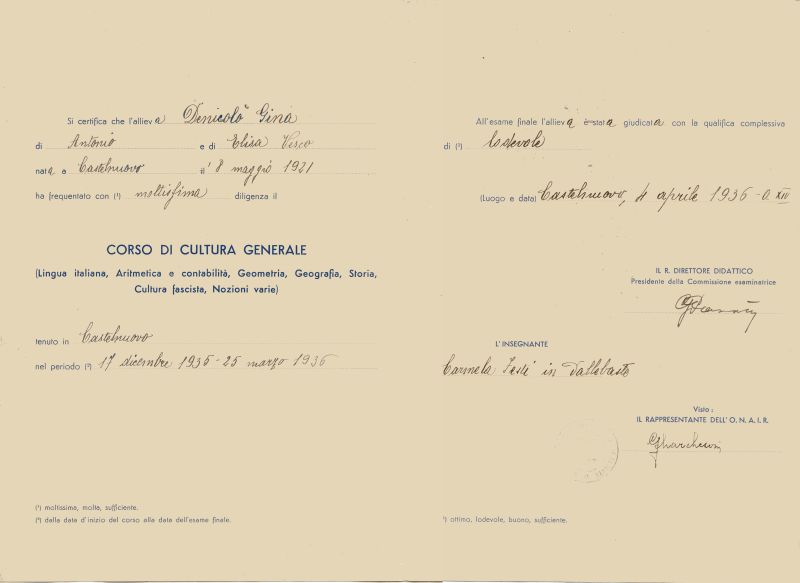 Si certifica che l'allieva Denicolò Gina
di Antonio e di Elisa Vesco
nata a Castelnuovo il 8 maggio 1921
ha frequentato con (¹) moltissima diligenza il
CORSO DI CULTURA GENERALE
(Lingua italiana, Aritmetica e contabilità, Geometria, Geografia, Storia,
Cultura fascista, Nozioni varie)
tenuto in Castelnuovo
nel periodo (²) 17 dicembre 1935 - 25 marzo 1936
(¹) moltissima, molta, sufficiente.
(²) dalla data d'inizio del corso alla data dell'esame finale.
All'esame finale l'allieva è stata giudicata con la qualifica complessiva
di (³) lodevole
(Luogo e data) Castelnuovo, 4 aprile 1936 - a. XIV
IL R. DIRETTORE DIDATTICO
Presidente della Commissione esaminatrice
L'INSEGNANTE
Carmela in
Visto :
IL RAPPRESENTANTE DELL' O. N. A. I. R.
³) ottimo, lodevole, buono, sufficiente.